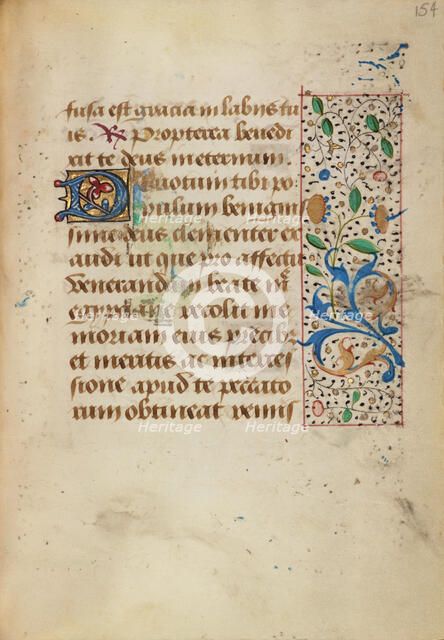 154
fusa est gracia in labijs tu
is. ℣ Propterea benedi
xit te deus in eternum.
Deuotum tibi po
pulum benignis
sime deus clementer ex
audi ut que pro affectu
venerandam beate
recolit me
moriam eius
et meritis ac interces
sione apud te peccato
rum obtineat remis
Heritage
Heritage
Heritage
Heritage
Heritage
Heritage